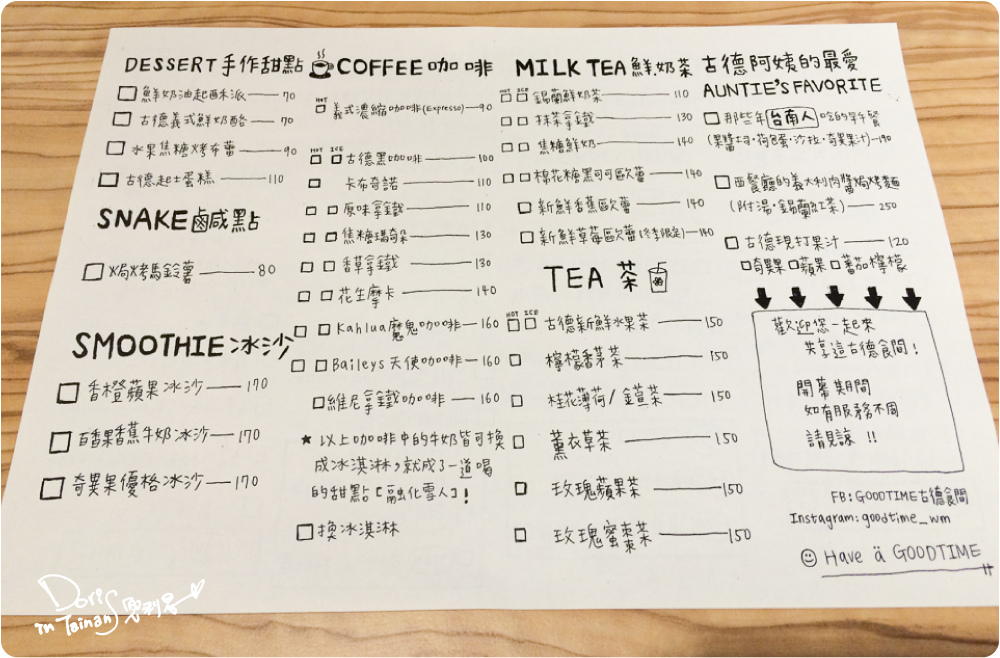 DESSERT 手作甜點
鮮奶油起酥派 70
古德義式鮮奶酪 70
水果焦糖烤布蕾 90
古德起士蛋糕 110
SNAKE 鹹點
焗烤馬鈴薯 80
SMOOTHIE 冰沙
香橙蘋果冰沙 170
百香果香蕉牛奶冰沙 170
奇異果優格冰沙 170
COFFEE 咖啡
HOT
義式濃縮咖啡(Expresso) 90
HOT ICE
古德黑咖啡 100
卡布奇諾 110
原味拿鐵 110
焦糖瑪奇朵 130
香草拿鐵 130
花生摩卡 140
Kahlua魔鬼咖啡 160
Baileys天使咖啡 160
維尼拿鐵咖啡 160
★ 以上咖啡中的牛奶皆可換
成冰淇淋，就成了一道喝
的甜點[融化雪人]!
換冰淇淋
MILK TEA 鮮奶茶
HOT ICE
錫蘭鮮奶茶 110
抹茶拿鐵 130
焦糖鮮奶 140
棉花糖黑可可歐蕾 140
新鮮香蕉歐蕾 140
新鮮草莓歐蕾(冬季限定) 140
TEA 茶
HOT ICE
古德新鮮水果茶 150
檸檬香茅茶 150
桂花薄荷/萱茶 150
薰衣草茶 150
玫瑰蘋果茶 150
玫瑰蜜棗茶 150
古德阿姨的最愛
AUNTIE'S FAVORITE
那些年台南人唸的早餐
(果醬土司·荷包蛋·沙拉·奇異果汁) 190
西餐廳的義大利肉醬焗烤麵
(附湯·錫蘭紅茶) 250
古德現打果汁 120
奇異果 蘋果 蕃茄檸檬
歡迎您一起來
共享這古德食間!
開幕期間
如有服務不周
請見諒 !!
FB: GOODTIME古德食間
Instagram: goodtime_wm
Have ä GOODTIME
Doris
in Tainan